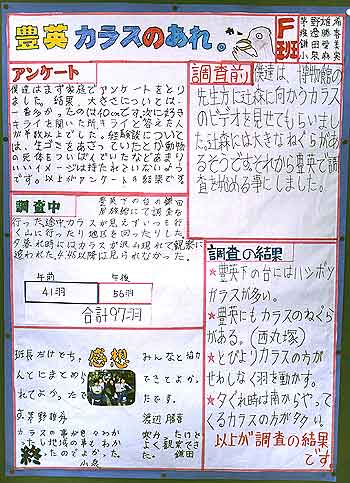 豊英カラスのあれ。
F班
アンケート
僕達はまず家庭でアンケートをとり
ました。結果、大きさについては、
一番多かったのは40cmです。次に好き
キライを聞いた所キライと答えた人
が半数以上でした。経験談について
は、生ゴミをあさっていたとか動物
の死体をついばんでいたなどあまり
いいイメージは持たれていないよう
です。以上がアンケートの結果です
調査前
僕達は、博物館の
先生方に近森に向かうカラス
のビデオを見せてもらいまし
た。近森には大きなねぐらがあ
るそうです。それから豊英で調
査を始める事にしました。
調査中
行った途中、カラスが見えずいつも行
く山に行ったり地区を回ったりした。
夕暮れ時にはカラスが沢山現れて観察に
追われた。4:45以降は見られなかった
午前
午後
41羽
56羽
合計97羽
調査の結果
★豊英下の台にはハシボソ
カラスが多い。
★豊英にもカラスのねぐら
がある。(西丸塚)
★とびよりカラスの方が
せわしなく羽を動かす。
★夕ぐれ時は南からやって
くるカラスの方が多い。
以上が調査の結果
です
感想
班長だけでち
んとにまとめら
れてよか。たで
みんなと協力
できてよかっ
たです。
渡辺勝喜
カラスの事が色々わか
ったし地域の事もわか
ったのでよかった。
終